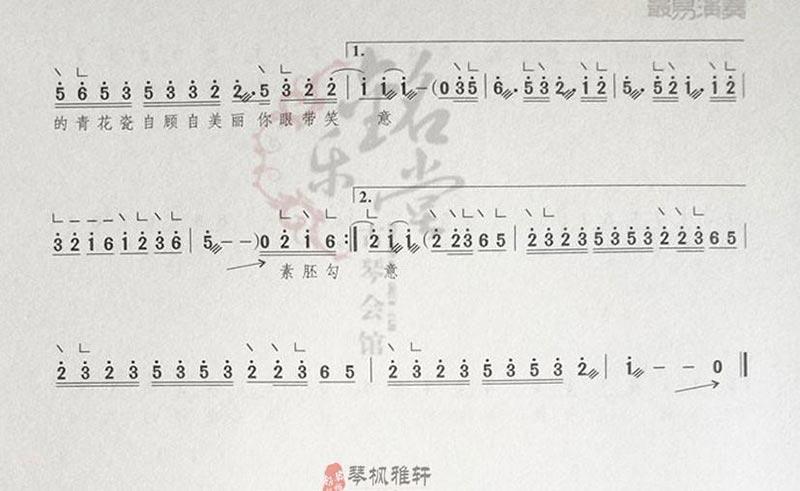 最易演奏
1.
5 6 5 3 5 3 3 2 2. 5 3 2 2 | i i i – (0 3 5 | 6. 5 3 2. 1 2 | 5. 5 2 i. 1 2 |
的青花瓷自顾自美丽你眼带笑 意
2.
3 2 1 6 1 2 3 6 | 5 – –) 0 2 1 6 :‖ 2 i i (2 2 3 6 5 | 2 3 2 3 5 3 5 3 2 2 3 6 5 |
素胚勾 意
2 3 2 3 5 3 5 3 2 2 3 6 5 | 2 3 2 3 5 3 5 3 2 | i – – 0 ‖
琴会馆
琴枫雅轩